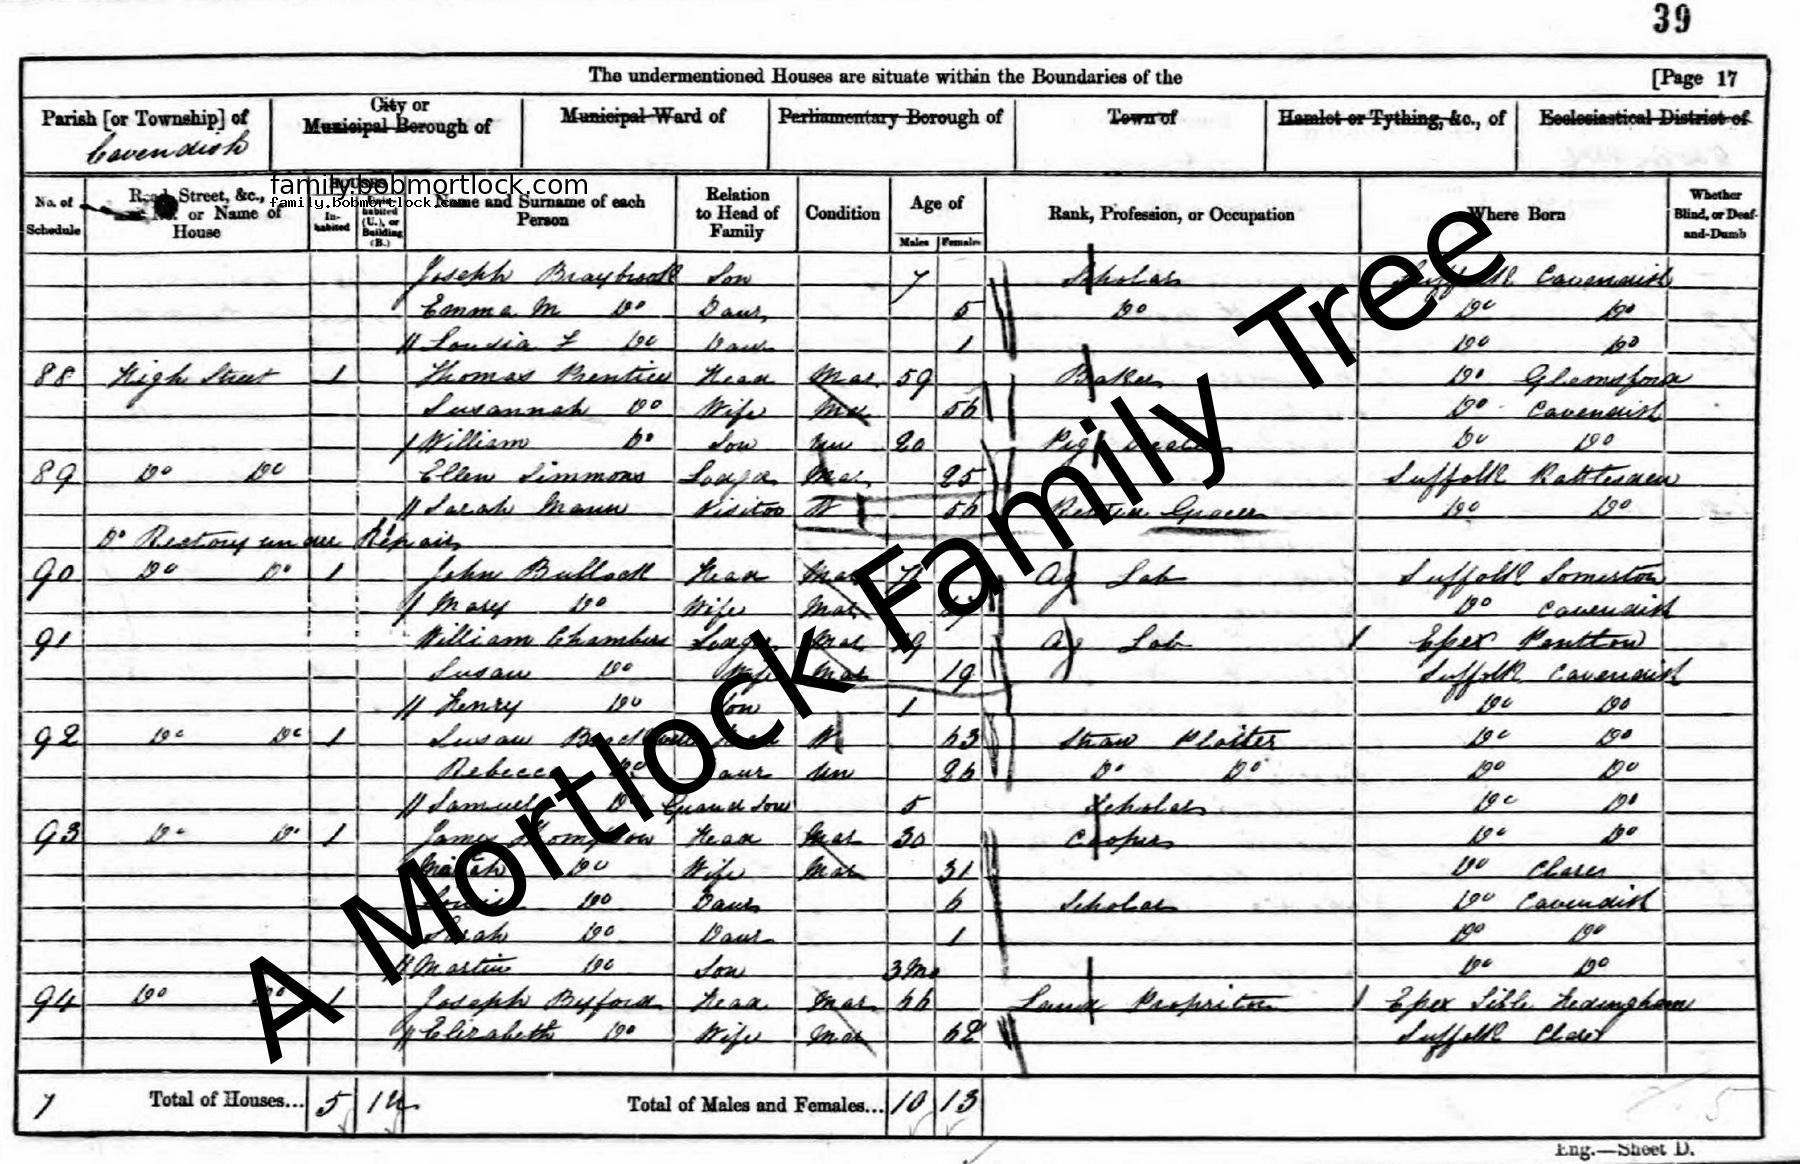 39
The undermentioned Houses are situate within the Boundaries of the [Page 17
Parish [or Township] of City or Municipal Borough of Municipal Ward of Parliamentary Borough of Town of Hamlet or Tything, &c., of Ecclesiastical District of
Cavendish
family.bobmortlock.com
family.bobmortlock.com
No. of Schedule Road, Street, &c., and No. or Name of House HOUSES Inhabited Uninhabited (U.), or Building (B.) Name and Surname of each Person Relation to Head of Family Condition Age of Males Females Rank, Profession, or Occupation Where Born Whether Blind, or Deaf-and-Dumb
Joseph Braybrook Son 7 Scholar Suffolk Cavendish
Emma M Do Daur 5 Do Do Do
Louisa F Do Daur 1 Do Do
88 High Street 1 Thomas Prentice Head Mar 59 Baker Do Glemsford
Susannah Do Wife Mar 56 Do Cavendish
William Do Son Un 20 Pig Dealer Do Do
89 Do Do Ellen Simmons Lodger Mar 25 Suffolk Rattlesden
Sarah Mann Visitor W 56 Retired Grocer Do Do
Do Rectory under Repair
90 Do Do 1 John Bullock Head Mar Ag Lab Suffolk Somerton
Mary Do Wife Mar Do Cavendish
91 William Chambers Lodger Mar Ag Lab Essex Pentlow
Susan Do Wife Mar 19 Suffolk Cavendish
Henry Do Son 1 Do Do
92 Do Do 1 Susan Head W 63 Straw Platter Do Do
Rebecca Do Daur Un 26 Do Do Do Do
Samuel Do Grand Son 5 Scholar Do Do
93 Do Do 1 James Thompson Head Mar 30 Cooper Do Do
Do Wife Mar 31 Do Clare
Do Daur 6 Scholar Do Cavendish
Sarah Do Daur 1 Do Do
Martin Do Son 3 Mo Do Do
94 Do Do 1 Joseph Byford Head Mar 66 Land Propritor Essex Sible Hedingham
Elizabeth Do Wife Mar 62 Suffolk Clare
7 Total of Houses... 5 1U Total of Males and Females... 10 13
Eng.—Sheet D.
A Mortlock Family Tree